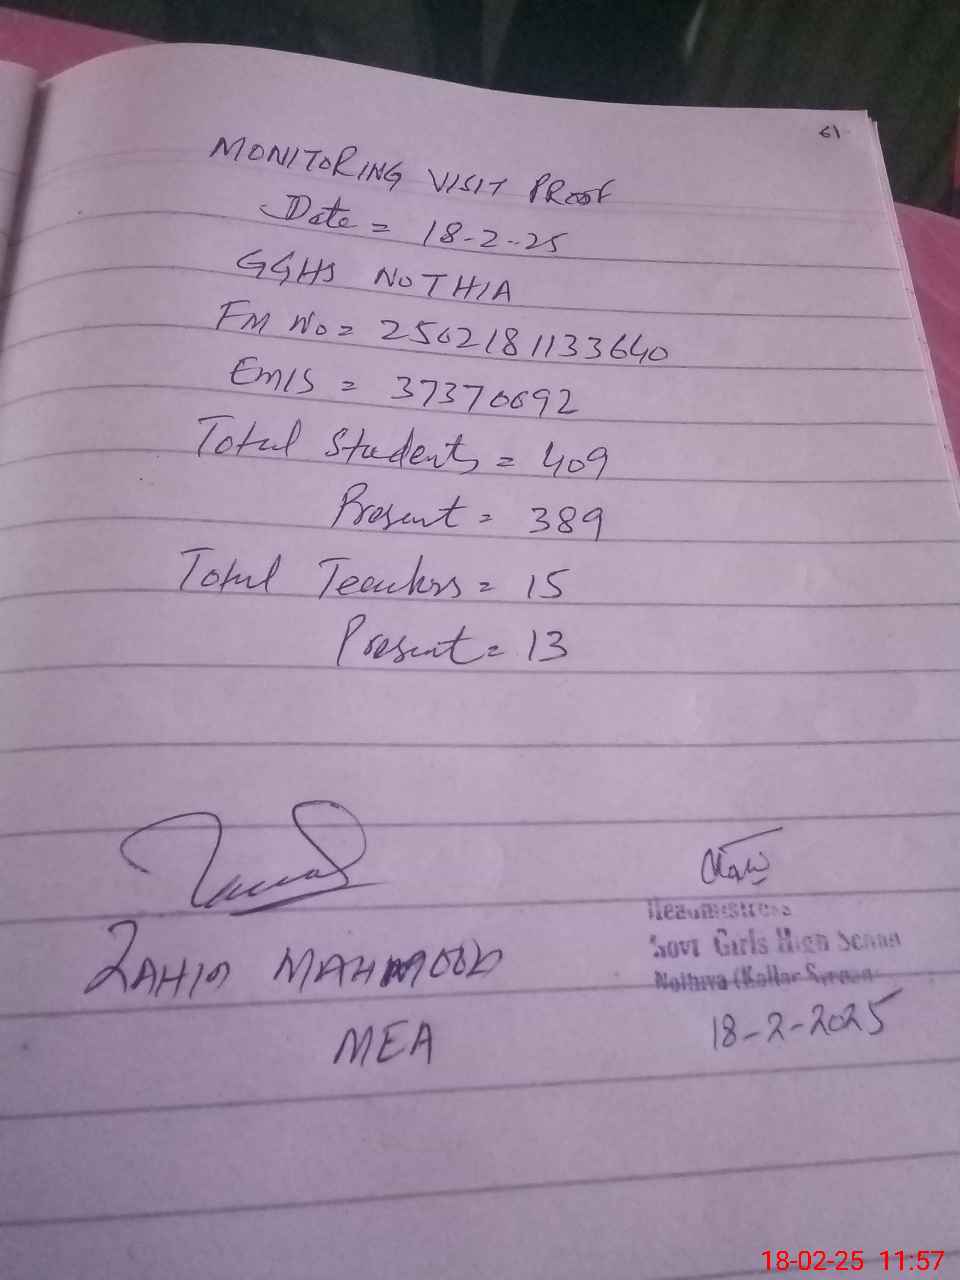 61
MONITORING VISIT PROOF
Date = 18-2-25
GGHS NOTHIA
FM No = 2502181133640
EMIS = 37370092
Total Students = 409
Present = 389
Total Teachers = 15
Present = 13
ZAHID MAHMOOD
MEA
Headmistress
Govt Girls High School
Nothiya (Kallar Syedan
18-2-2025
18-02-25 11:57